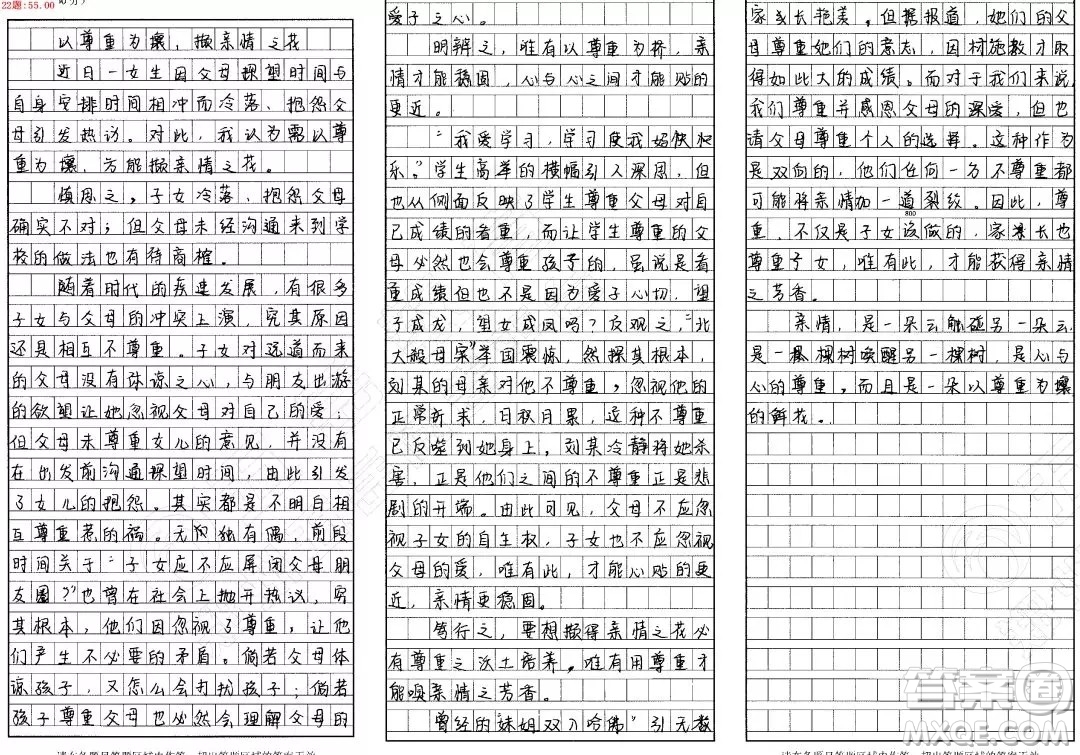 22题:55.00
以尊重为壤，撷亲情之花
近日一女生因父母探望时间与
自身安排时间相冲而冷落、抱怨父
母引发热议。对此，我认为需以尊
重为壤，方能撷亲情之花。
慎思之，子女冷落、抱怨父母
确实不对；但父母未经沟通来到学
校的做法也有待商榷。
随着时代的疾速发展，有很多
子女与父母的冲突上演，究其原因
还是相互不尊重。子女对远道而来
的父母没有体谅之心，与朋友出游
的欲望让她忽视父母对自己的爱；
但父母未尊重女儿的意见，并没有
在出发前沟通探望时间，由此引发
了女儿的抱怨。其实都是不明白相
互尊重惹的祸。无独有偶，前段
时间关于“子女应不应屏闭父母朋
友圈？”也曾在社会上抛开热议，究
其根本，他们因忽视了尊重，让他
们产生不必要的矛盾。倘若父母体
谅孩子，又怎么会打扰孩子；倘若
孩子尊重父母也必然会理解父母的
爱子之心。
明辨之，唯有以尊重为桥，亲
情才能稳固，心与心之间才能贴的
更近。
“我爱学习，学习使我妈快
乐。”学生高举的横幅引人深思，但
也从侧面反映了学生尊重父母对自
己成绩的看重，而让学生尊重的父
母必然也会尊重孩子的，虽说是看
重成绩但也不是因为爱子心切，望
子成龙，望女成凤吗？反观之，“北
大弑母案”举国震惊，然探其根本，
刘某的母亲对他不尊重，忽视他的
正常诉求，日积月累，这种不尊重
已反噬到她身上，刘某冷静将她杀
害，正是他们之间的不尊重正是悲
剧的开端。由此可见，父母不应忽
视子女的自主权，子女也不应忽视
父母的爱，唯有此，才能心贴的更
近，亲情更稳固。
笃行之，要想撷得亲情之花必
有尊重之沃土培养。唯有用尊重才
能嗅亲情之芳香。
曾经的“妹姐双入哈佛”引无数
家长艳羡。但据报道，她们的父
母尊重她们的意志，因材施教才取
得如此大的成绩。而对于我们来说，
我们尊重并感恩父母的深爱，但也
请父母尊重个人的选择。这种作为
是双向的，他们任何一方不尊重都
可能将亲情加一道裂纹。因此，尊
800
重，不仅是子女该做的，家长也
尊重子女，唯有此，才能获得亲情
之芳香。
亲情，是一朵云能碰另一朵云，
是一棵树唤醒另一棵树，是心与
心的尊重，而且是一朵以尊重为壤
的鲜花。
答案圈